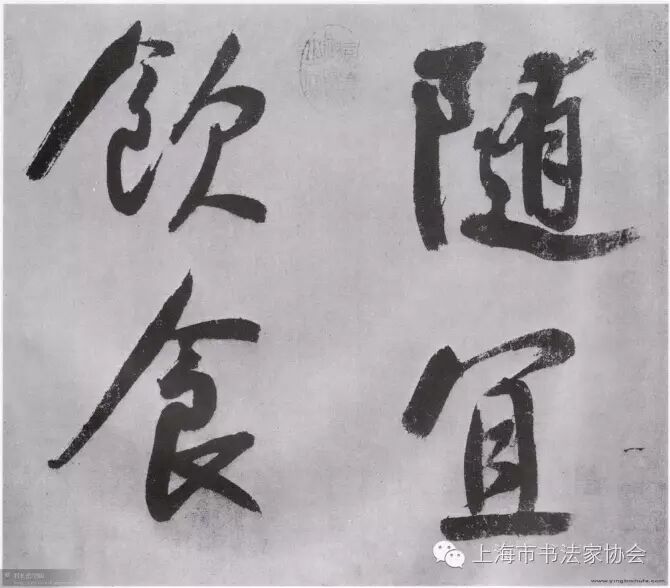 随宜
飲食
上海市书法家协会